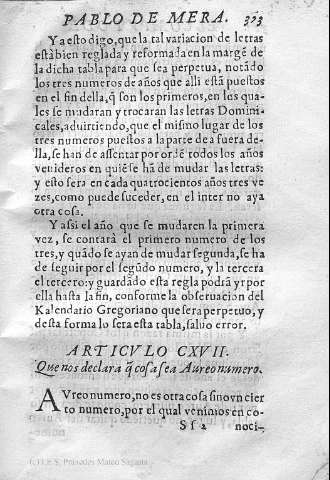 PABLO DE MERA. 373
Y a esto digo, que la tal variacion de letras
està bien reglada y reformada en la margẽ de
la dicha tabla para que sea perpetua, notãdo
los tres numeros de años que alli estã puestos
en el fin della, q̃ son los primeros, en los qua-
les se mudaran y trocaran las letras Domini-
cales, aduirtiendo, que el mismo lugar de los
tres numeros puestos a la parte de a fuera de-
lla, se han de assentar por ordẽ todos los años
venideros en quiẽ se hã de mudar las letras:
y esto sera en cada quatrocientos años tres ve-
zes, como puede suceder, en el inter no aya
otra cosa.
Y assi el año que se mudaren la primera
vez, se contarà el primero numero de los
tres, y quãdo se ayan de mudar segunda, se ha
de seguir por el segũdo numero, y la tercera
el tercero: y guardãdo esta regla podrã yr por
ella hasta la fin, conforme la obseruacion del
Kalendario Gregoriano que sera perpetuo, y
desta forma lo sera esta tabla, saluo error.
ARTICVLO CXVII.
Que nos declara q̃ cosa sea Aureo numero.
AVreo numero, no es otra cosa sino vn cier
to numero, por el qual venimos en co-
Ss 2 noci-
(c) I.E.S. Práxedes Mateo Sagasta